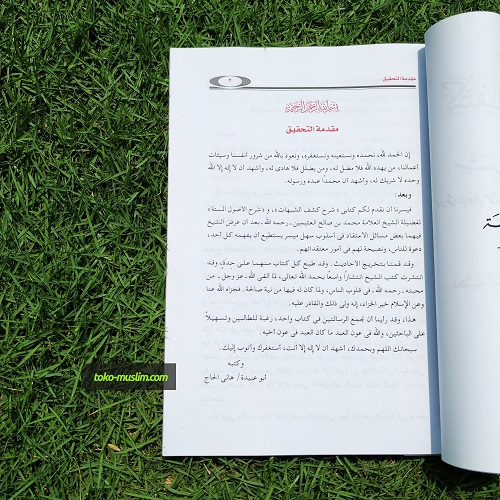 مقدمة التحقيق
بسم الله الرحمن الرحيم
مقدمة التحقيق
إن الحمد لله، نحمده ونستعينه ونستغفره، ونعوذ بالله من شرور أنفسنا وسيئات
أعمالنا، من يهده الله فلا مضل له، ومن يضلل فلا هادى له، وأشهد أن لا إله إلا الله
وحده لا شريك له، وأشهد أن محمداً عبده ورسوله.
وبعد:
فيسرنا أن نقدم لكم كتابى «شرح كشف الشبهات»، و«شرح الأصول الستة»
لفضيلة الشيخ العلامة محمد بن صالح العثيمين ـ رحمه الله ـ بعد أن عرض الشيخ
فيهما بعض مسائل الاعتقاد فى أسلوب سهل ميسر يستطيع أن يفهمه كل أحد،
دعوة للناس، ونصيحة لهم فى أمور معتقداتهم.
وقد قمنا بتخريج الأحاديث. وقد طبع كل كتاب منهما على حدة، وقد
انتشرت كتب الشيخ انتشاراً واسعاً بحمد الله تعالى، لما ألقى الله ـ عز وجل ـ من
محبته ـ رحمه الله ـ فى قلوب الناس، ولما كان له فيها من نية صالحة. فجزاه الله عنا
وعن الإسلام خير الجزاء، إنه ولى ذلك والقادر عليه.
هذا، وقد رأينا أن نجمع الرسالتين فى كتاب واحد، رغبة للطالبين وتسهيلاً
على الباحثين، والله فى عون العبد ما كان العبد فى عون أخيه.
سبحانك اللهم وبحمدك، أشهد أن لا إله إلا أنت، أستغفرك وأتوب إليك.
وكتبه
أبو عبيدة/ هانى الحاج
toko-muslim.com